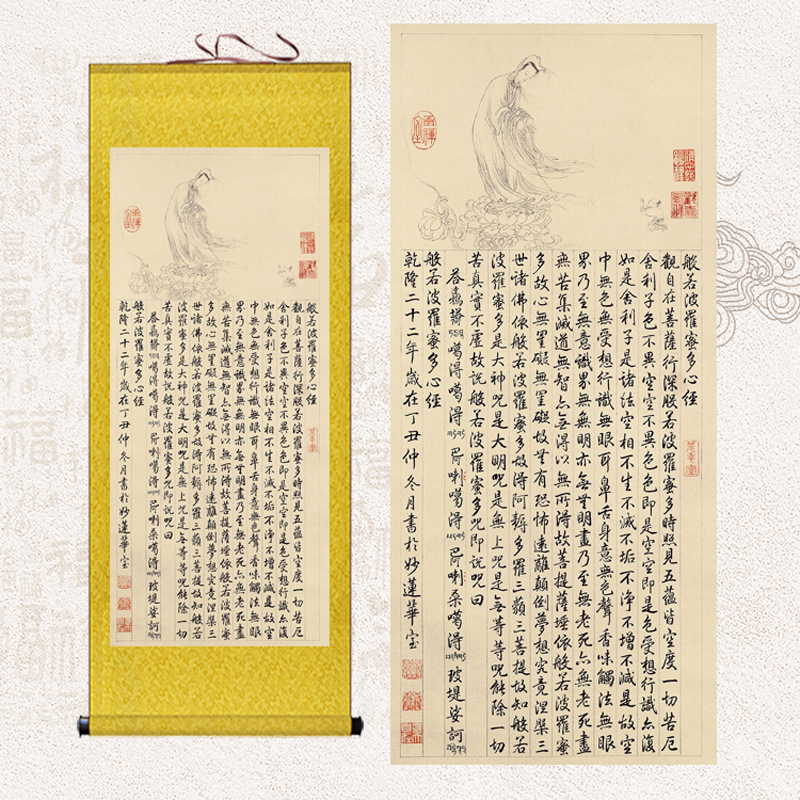 般若波羅蜜多心經
觀自在菩薩行深般若波羅蜜多時照見五蘊皆空度一切苦厄
舍利子色不異空空不異色色即是空空即是色受想行識亦復
如是舍利子是諸法空相不生不滅不垢不淨不增不減是故空
中無色無受想行識無眼耳鼻舌身意無色聲香味觸法無眼
界乃至無意識界無無明亦無無明盡乃至無老死亦無老死盡
無苦集滅道無智亦無得以無所得故菩提薩埵依般若波羅蜜
多故心無罣礙無罣礙故無有恐怖遠離顛倒夢想究竟涅槃三
世諸佛依般若波羅蜜多故得阿耨多羅三藐三菩提故知般若
波羅蜜多是大神咒是大明咒是無上咒是無等等咒能除一切
苦真實不虛故說般若波羅蜜多咒即說咒曰
噶得噶得 喇噶得 喇桑噶得 玻堤娑訶
般若波羅蜜多心經
乾隆二十二年歲在丁丑仲冬月書於妙蓮華室
般若波羅蜜多心經
觀自在菩薩行深般若波羅蜜多時照見五蘊皆空度一切苦厄
舍利子色不異空空不異色色即是空空即是色受想行識亦復
如是舍利子是諸法空相不生不滅不垢不淨不增不減是故空
中無色無受想行識無眼耳鼻舌身意無色聲香味觸法無眼
界乃至無意識界無無明亦無無明盡乃至無老死亦無老死盡
無苦集滅道無智亦無得以無所得故菩提薩埵依般若波羅蜜
多故心無罣礙無罣礙故無有恐怖遠離顛倒夢想究竟涅槃三
世諸佛依般若波羅蜜多故得阿耨多羅三藐三菩提故知般若
波羅蜜多是大神咒是大明咒是無上咒是無等等咒能除一切
苦真實不虛故說般若波羅蜜多咒即說咒曰
噶得噶得 喇噶得 喇桑噶得 玻堤娑訶
般若波羅蜜多心經
乾隆二十二年歲在丁丑仲冬月書於妙蓮華室